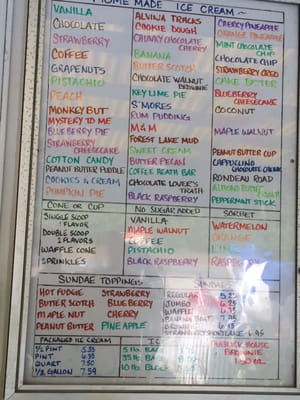 HOME MADE ICE CREAM
VANILLA
CHOCOLATE
STRAWBERRY
COFFEE
GRAPENUTS
PISTACHIO
PEACH
MONKEY BUTT
MYSTERY TO ME
BLUEBERRY PIE
STRAWBERRY
CHEESECAKE
COTTON CANDY
PEANUT BUTTER PUDDLE
COOKIES & CREAM
PUMPKIN PIE
ALVINA TRACKS
COOKIE DOUGH
CHUNKY CHOCOLATE
CHERRY
BANANA
BUTTER SCOTCH
CHOCOLATE WALNUT
BROWNIE
KEY LIME PIE
S'MORES
RUM PUDDING
M&M
FOREST LAKE MUD
SWEET CREAM
BUTTER PECAN
COFFEE HEATH BAR
CHOCOLATE LOVER'S
BLACK RASPBERRY
CHERRY PINEAPPLE
ORANGE PINEAPPLE
MINT CHOCOLATE
CHIP
CHOCOLATE CHIP
STRAWBERRY OREO
CAKE BATTER
BLUEBERRY
CHEESECAKE
COCONUT
MAPLE WALNUT
PEANUT BUTTER CUP
CAPPUCCINO
CHOCOLATE CHUNK
RONDEAU ROAD
ALMOND BUTTER
PEPPERMINT STICK
CONE OR CUP
SINGLE SCOOP
1 FLAVOR
DOUBLE SCOOP
2 FLAVORS
WAFFLE CONE
SPRINKLES
NO SUGAR ADDED
VANILLA
MAPLE WALNUT
COFFEE
PISTACHIO
BLACK RASPBERRY
SORBET
WATERMELON
ORANGE
RASPBERRY
SUNDAE TOPPINGS
HOT FUDGE STRAWBERRY
BUTTER SCOTCH BLUEBERRY
MAPLE NUT CHERRY
PEANUT BUTTER PINEAPPLE
SUNDAES
REGULAR 5.25
JUMBO 6.25
WAFFLE
BANANA BOAT
BROWNIE
STRAWBERRY SHORTCAKE 6.95
PACKAGED ICE CREAM
½ PINT
PINT
QUART 7.50
½ GALLON 7.59
5 lb. BAG
10 lb. BLOCK
HOUSE
BROWNIE